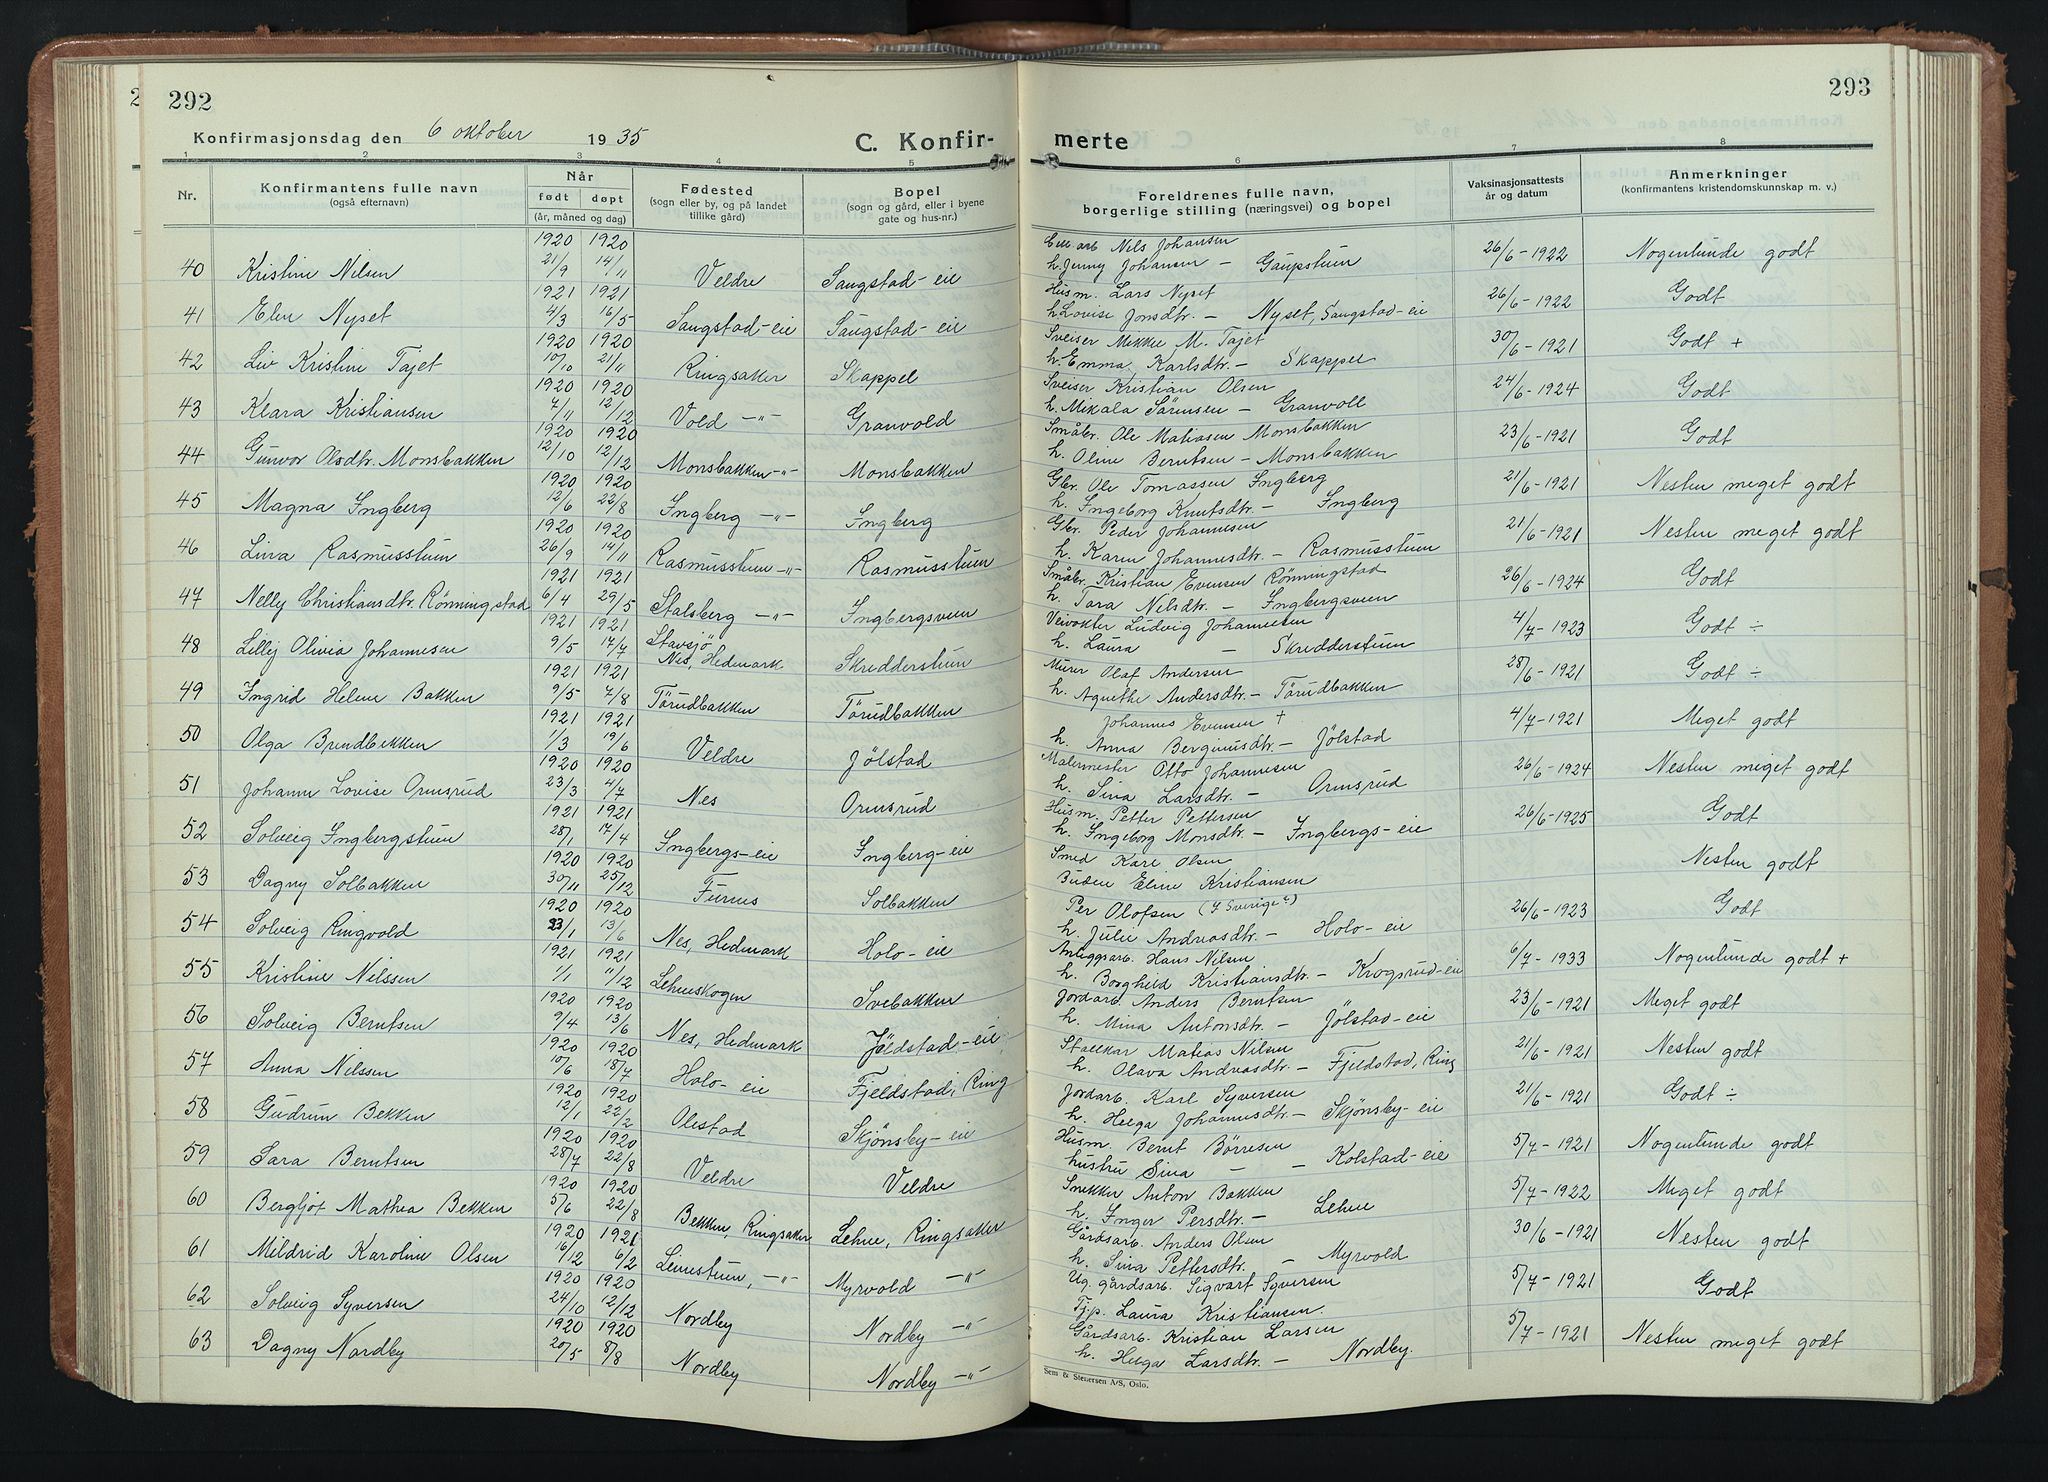 292
Konfirmasjonsdag den 6 oktober 1935
C. Konfir-
1 2 3 4 5
Nr.
Konfirmantens fulle navn
(også efternavn)
Når
født døpt
(år, måned og dag)
Fødested
(sogn eller by, og på landet
tillike gård)
Bopel
(sogn og gård, eller i byene
gate og hus-nr.)
40 Kristine Nilsen 1920 21/9 1920 14/11 Veldre Saugstad-eie
41 Elen Nyset 1921 4/3 1921 16/5 Saugstad-eie Saugstad-eie
42 Liv Kristine Tajet 1920 10/10 1920 21/11 Ringsaker Skappel
43 Klara Kristiansen 1920 7/11 1920 12/12 Vold -"- Granvold
44 Gunvor Olsdtr. Monsbakken 1920 12/10 1920 12/12 Monsbakken -"- Monsbakken
45 Magna Ingberg 1920 12/6 1920 22/8 Ingberg -"- Ingberg
46 Lina Rasmusstuen 1920 26/9 1920 14/11 Rasmusstuen -"- Rasmusstuen
47 Nelly Christiansdtr. Rönningstad 1921 6/4 1921 29/5 Stalsberg -"- Ingbergsveen
48 Lilly Olivia Johannesen 1921 9/5 1921 17/7 Stavsjö Nes, Hedmark Skredderstuen
49 Ingrid Helene Bakken 1921 9/5 1921 7/8 Törudbakken Törudbakken
50 Olga Brendbekken 1921 1/3 1921 19/6 Veldre Jølstad
51 Johanne Lovise Ormsrud 1920 23/3 1920 4/7 Nes Ormsrud
52 Solveig Ingbergstuen 1921 28/1 1921 17/4 Ingbergs-eie Ingberg-eie
53 Dagny Solbakken 1920 30/11 1920 25/12 Furnes Solbakken
54 Solveig Ringvold 1920 23/1 1920 13/6 Nes, Hedmark Holo-eie
55 Kristine Nilssen 1921 1/1 1921 11/12 Lehneskogen Svebakken
56 Solveig Berntsen 1920 9/4 1920 13/6 Nes, Hedmark Jöldstad-eie
57 Anna Nilssen 1920 10/6 1920 18/7 Holo-eie Fjeldstad, Ring
58 Gudrun Bekken 1920 12/1 1920 22/2 Olestad Skjønsby-eie
59 Sara Berntsen 1920 28/7 1920 22/8 Veldre Veldre
60 Bergljot Mathea Bekken 1920 5/6 1920 22/8 Bekken, Ringsaker Lehne, Ringsaker
61 Mildrid Karoline Olsen 1920 16/12 1921 6/2 Linnestuen, -"- Myrvold -"-
62 Solveig Syversen 1920 24/10 1920 12/12 Nordby Nordby -"-
63 Dagny Nordby 1920 20/5 1920 8/8 Nordby Nordby -"-
293
merte
6 7 8
Foreldrenes fulle navn,
borgerlige stilling (næringsvei) og bopel
Vaksinasjonsattests
år og datum
Anmerkninger
(konfirmantens kristendomskunnskap m. v.)
Cell arb Nels Johansen
h. Jenny Johansen - Gaupstuen 26/6-1922 Nogenlunde godt
Husm. Lars Nyset
h. Lovise Jonsdtr. - Nyset, Saugstad-eie 26/6-1922 Godt
Sveiser Mikke M. Tajet
h. Emma Karlsdtr. - Skappel 30/6-1921 Godt +
Sveiser Kristian Olsen
h. Mikala Sörensen - Granvoll 24/6-1924 Godt
Småbr. Ole Matiasen Monsbakken
h. Oline Berntsen - Monsbakken 23/6-1921 Godt
Gbr. Ole Tomassen Ingberg
h. Ingeborg Knutsdtr. - Ingberg 21/6-1921 Nesten meget godt
Gbr. Peder Johannesen
h. Karen Johannesdtr. - Rasmusstuen 21/6-1921 Nesten meget godt
Småbr. Kristian Evensen Rönningstad
h. Tara Nilsdtr. - Ingbergsveen 26/6-1924 Godt
Veivokter Ludvig Johannesen
h. Laura - Skredderstuen 4/7-1923 Godt ÷
Murer Olaf Andersen
h. Agnethe Andersdtr. - Törudbakken 28/6-1921 Godt ÷
Johannes Evensen †
h. Anna Berginusdtr. - Jølstad 4/7-1921 Meget godt
Malermester Otto Johannesen
h. Sina Larsdtr. - Ormsrud 26/6-1924 Nesten meget godt
Husm. Petter Pettersen
h. Ingeborg Monsdtr. - Ingbergs-eie 26/6-1925 Godt
Smed Karl Olsen
Budeie Eline Kristiansen Nesten godt
Per Olofsen (I Sverige?)
h. Julie Andreasdtr. - Holo-eie 26/6-1923 Godt
Anleggsarb. Hans Nilsen
h. Borghild Kristiansdtr. - Krogsrud-eie 6/7-1933 Nogenlunde godt +
Jordarb. Anders Berntsen
h. Mina Antonsdtr. - Jølstad-eie 23/6-1921 Meget godt
Stallkar Matias Nilsen
h. Olava Andreasdtr. - Fjeldstad, Ring 21/6-1921 Nesten godt
Jordarb. Karl Syversen
h. Helga Johannesdtr. - Skjønsby-eie 21/6-1921 Godt ÷
Husm. Bernt Börresen
hustru Sina - - Kolstad-eie 5/7-1921 Nogenlunde godt
Snekker Anton Bakken
h. Inger Persdtr. - Lehne 5/7-1922 Meget godt
Gårdsarb. Anders Olsen
h. Sina Pettersdtr. - Myrvold 30/6-1921 Nesten godt
Ug. gårdsarb. Sigvart Syversen
Tjp. Laura Kristiansen. 5/7-1921 Godt
Gårdsarb. Kristian Larsen
h. Helga Larsdtr. - Nordby. 5/7-1921 Nesten meget godt
Sem & Stenersen A/S, Oslo.